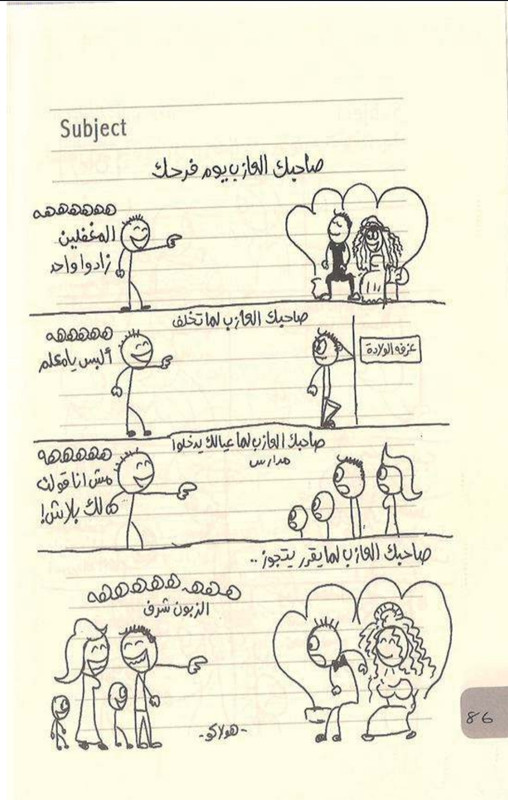 Subject
صاحبك العازب يوم فرحك
ههههههه
المغفلين
زادوا واحد
صاحبك العازب لما تخلف
هههههه
ألبس يا معلم
غرفه الولادة
صاحبك العازب لما عيالك يدخلوا
مدارس
ههههههه
مش انا قولت
لك بلاش!
صاحبك العازب لما يقرر يتجوز..
ههههههههه
الزبون شرف
-هولاكو-
86